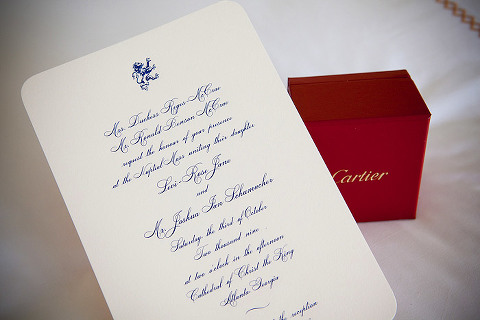 Mrs. Duchess Reges-McCou
Mr. Ronald Benson McCou
request the honour of your presence
at the Nuptial Mass uniting their daughter
Levi-Rose Jane
and
Mr. Joshua Ian Schumacher
Saturday, the third of October
Two thousand nine
at two o'clock in the afternoon
Cathedral of Christ the King
Atlanta Georgia
the reception
Cartier